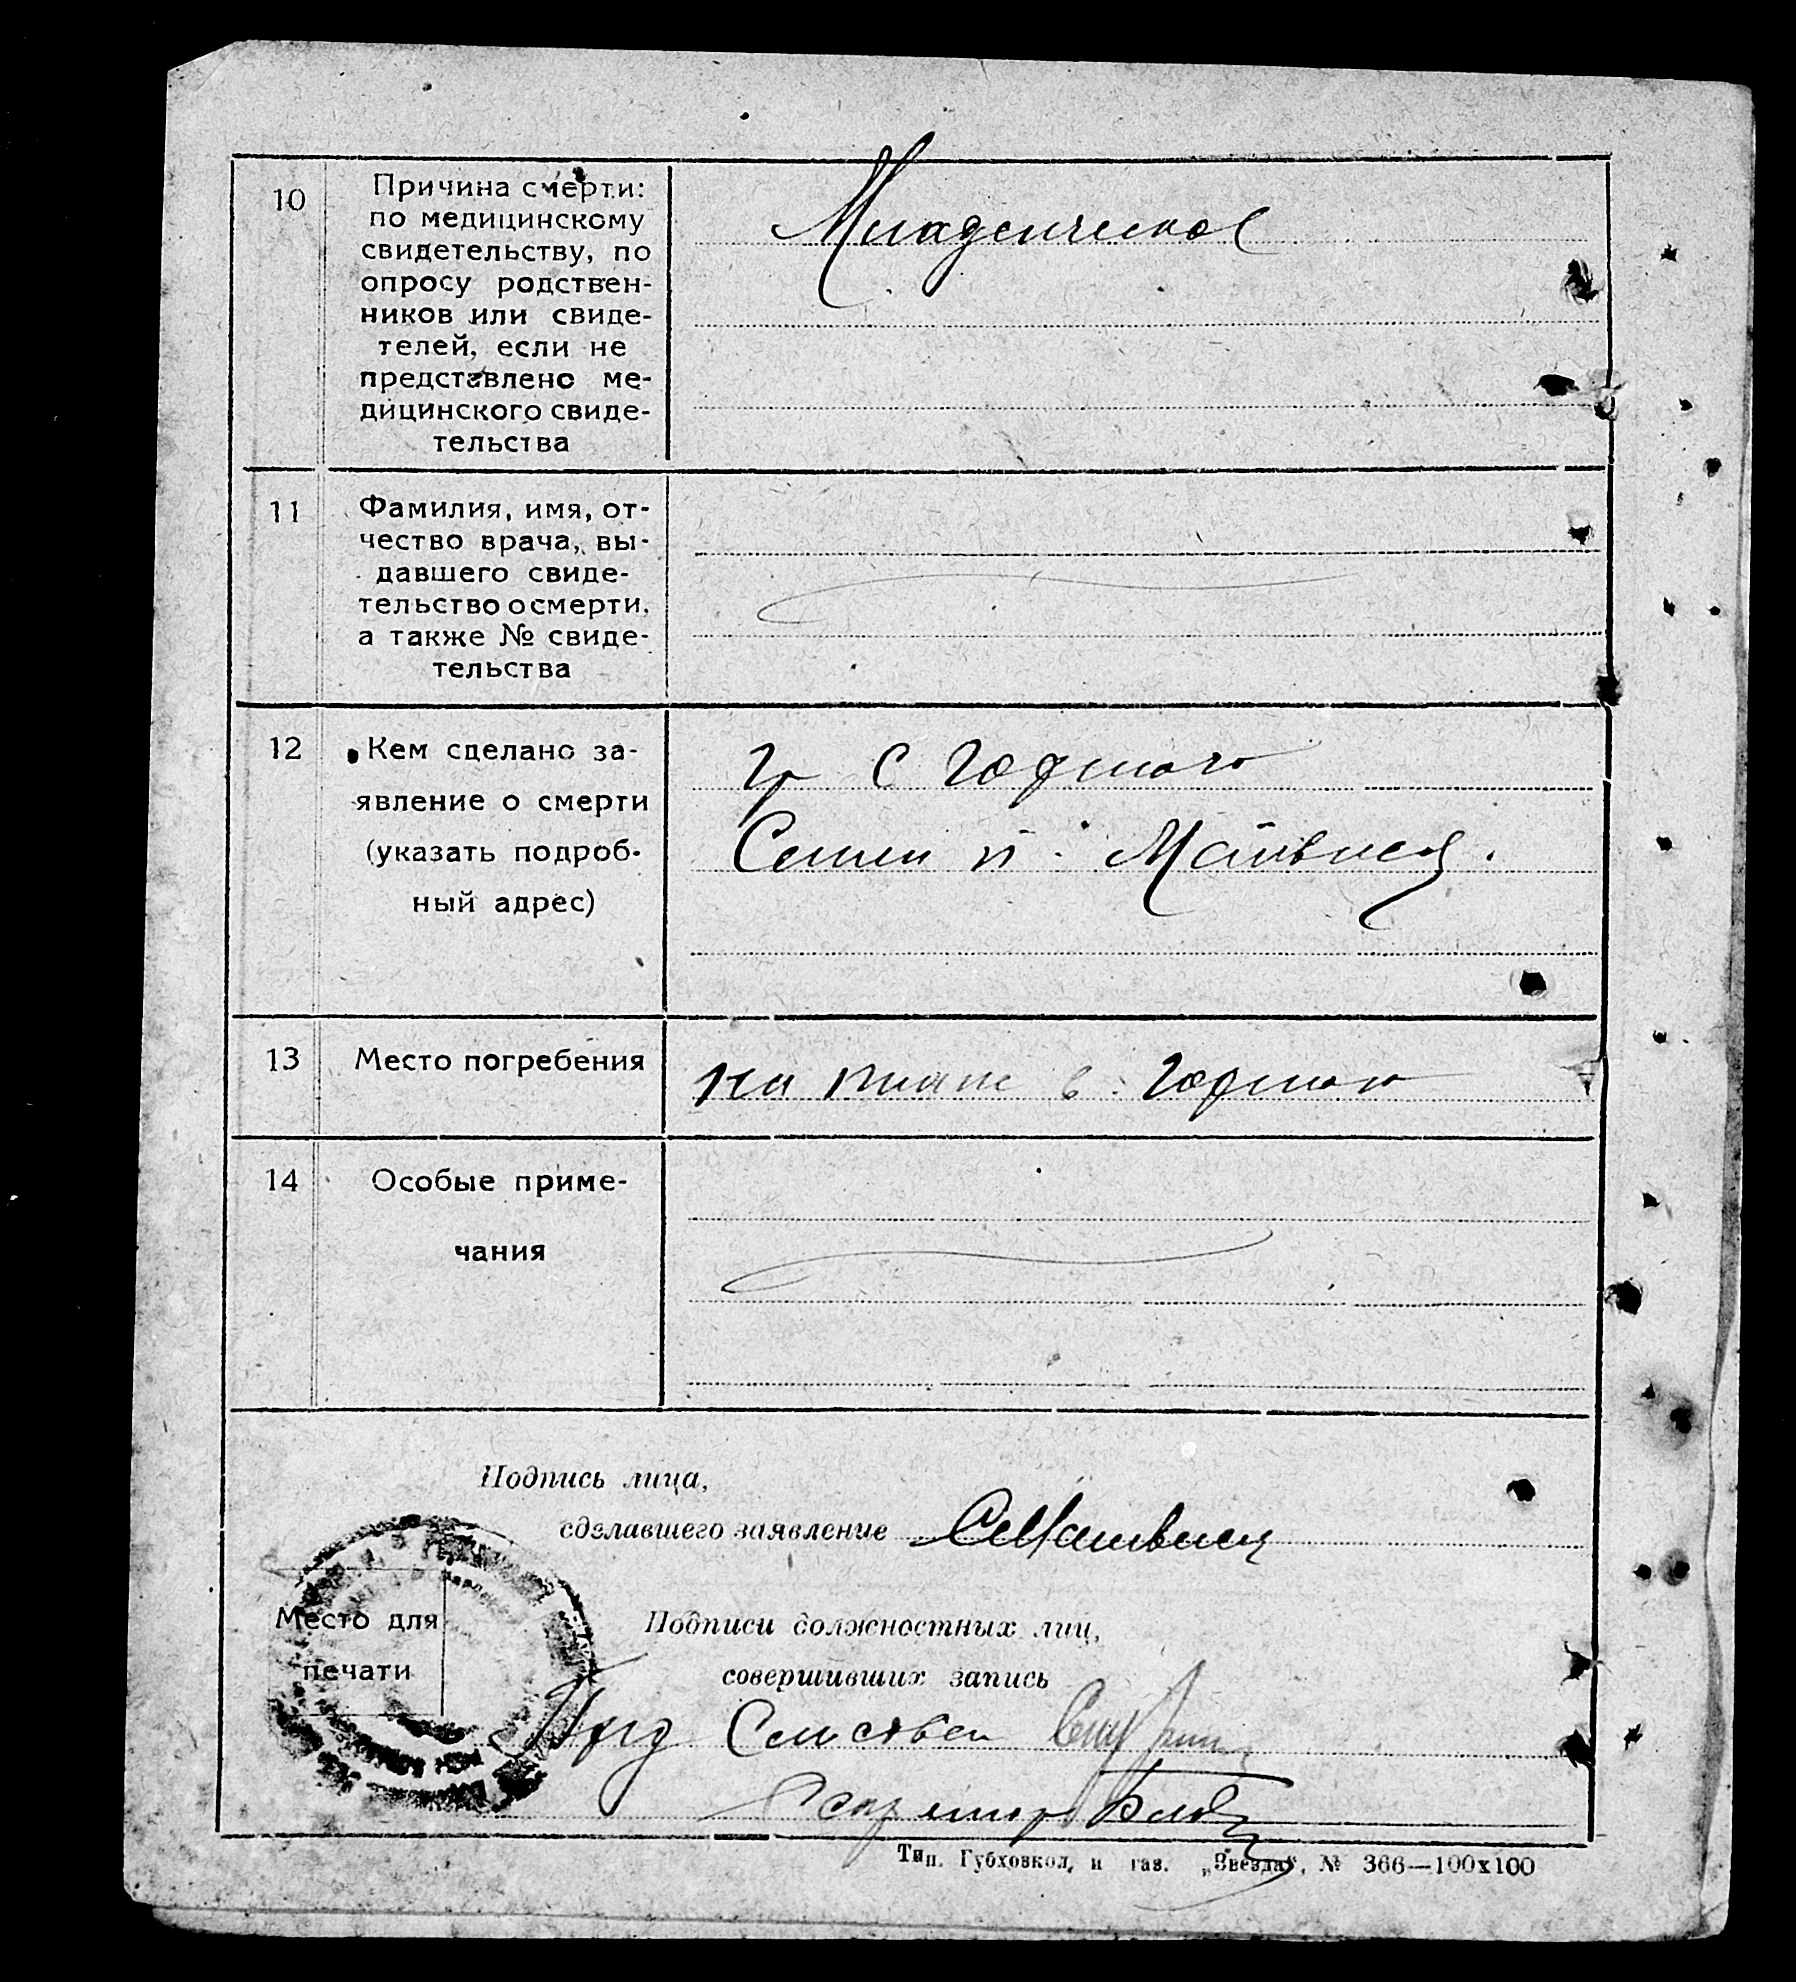 10
Причина смерти:
по медицинскому
свидетельству, по
опросу родствен-
ников или свиде-
телей, если не
представлено ме-
дицинского свиде-
тельства
Младенческое
11
Фамилия, имя, от-
чество врача, вы-
давшего свиде-
тельство о смерти,
а также № свиде-
тельства
12
Кем сделано за-
явление о смерти
(указать подроб-
ный адрес)
гр с
Матвиец.
13
Место погребения
на в
14
Особые приме-
чания
Подпись лица,
сделавшего заявление
Место для
печати
Подписи должностных лиц,
совершивших запись
Пред Сельсовета
Секретарь
Тип. Губховкол. и газ. „Звезда“, № 366—100х100